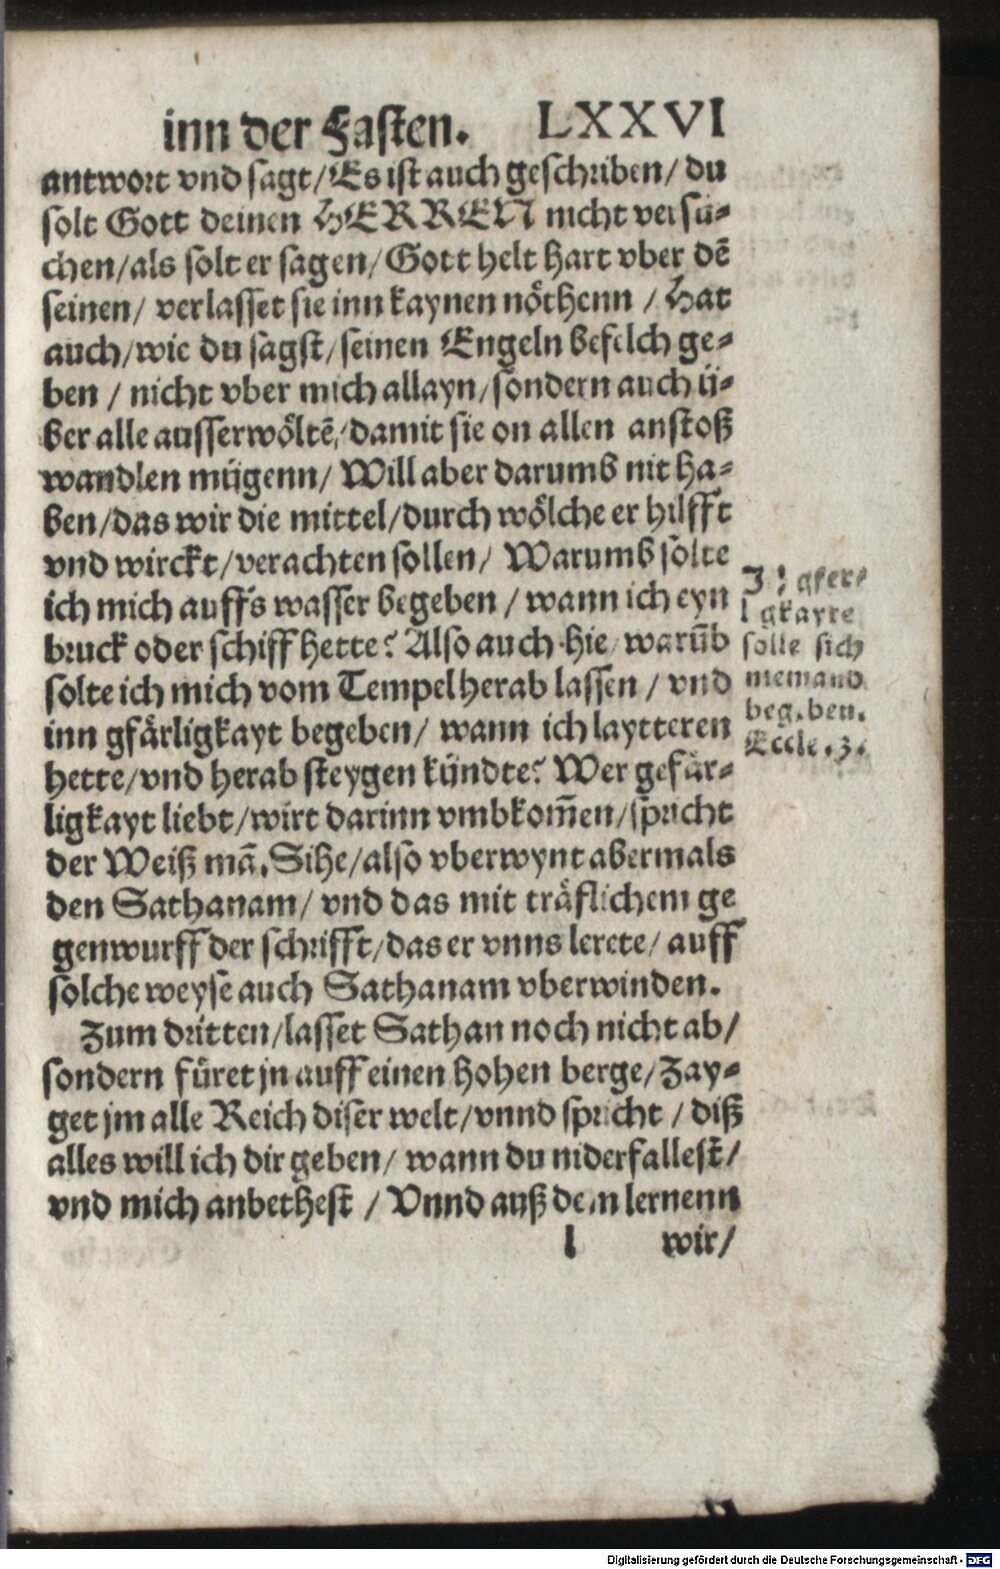 inn der Fasten. LXXVI
antwort vnd sagt/Es ist auch geschriben/ du
solt Gott deinen HERREN nicht versu-
chen/als solt er sagen/Gott helt hart vber dē
seinen/ verlasset sie inn kaynen nöthenn / Hat
auch/wie du sagst/seinen Engeln befelch ge-
ben / nicht vber mich allayn/sondern auch ü-
ber alle ausserwöltē/damit sie on allen anstoß
wandlen mügenn/ Will aber darumb nit ha-
ben/das wir die mittel/durch wölche er hilfft
vnd wirckt/verachten sollen/ Warumb solte
ich mich auffs wasser begeben / wann ich eyn
bruck oder schiff hette? Also auch hie/ warūb
solte ich mich vom Tempel herab lassen / vnd
inn gfärligkayt begeben/ wann ich laytteren
hette/vnd herab steygen kündte? Wer gefär-
ligkayt liebt/wirt darinn vmbkom̄en/spricht
der Weiß mā. Sihe/also vberwynt abermals
den Sathanam/ vnd das mit träflichem ge
genwurff der schrifft/das er vnns lerete/ auff
solche weyse auch Sathanam vberwinden.
Zum dritten/lasset Sathan noch nicht ab/
sondern füret jn auff einen hohen berge/Zay-
get jm alle Reich diser welt/vnnd spricht / diß
alles will ich dir geben/ wann du niderfallest/
vnd mich anbethest / Vnnd auß dem lernenn
l wir/
gfer-
ligkayte
solle sich
niemand
begeben.
Eccle.3.
Digitalisierung gefördert durch die Deutsche Forschungsgemeinschaft - DFG